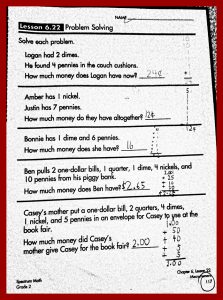 NAME
Lesson 6.22 Problem Solving
Solve each problem.
Logan had 2 dimes.
He found 4 pennies in the couch cushions.
How much money does Logan have now? 24¢
Amber has 1 nickel.
Justin has 7 pennies.
How much money do they have altogether? 12¢
Bonnie has 1 dime and 6 pennies.
How much money does she have? 16
Ben pulls 2 one-dollar bills, 1 quarter, 1 dime, 4 nickels, and
10 pennies from his piggy bank.
How much money does Ben have? $2.65
Casey's mother put a one-dollar bill, 2 quarters, 4 dimes,
1 nickel, and 5 pennies in an envelope for Casey to use at the
book fair.
How much money did Casey's
mother give Casey for the book fair? 2.00
100
+ 50
+ 40
+ 5
+ 5
2.00
Spectrum Math
Grade 2
Chapter 6, Lesson 22
113